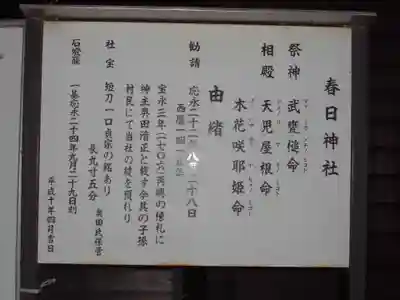 春日神社
祭神 武甕槌命
相殿 天児屋根命
木花咲耶姫命
由緒
勧請 応永二十二 八 二十八日
西暦一四一
宝永三年(一七〇六)丙戌の棟札に
神主奥田清正と載す今其の子孫
村民にて当社の鍵を預れり
社宝 短刀一口貞家の銘あり
長九寸五分 奥田氏保管
石燈籠 一基応永二十四年九月二十九日刻
平成十年四月吉日